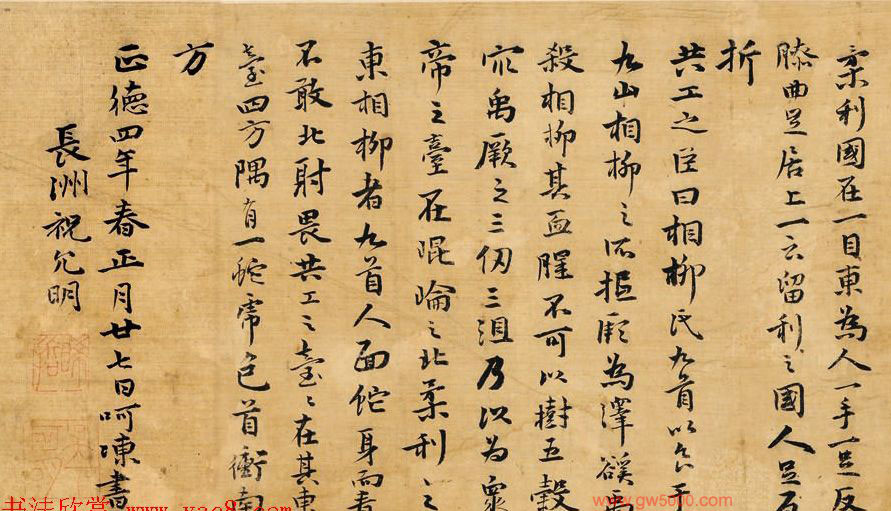 柔利國在一目東為人一手一足反
膝曲足居上一云留利之國人足反
折
共工之臣曰相柳氏九首以食于
九山相柳之所抵厥為澤谿
殺相柳其血腥不可以樹五穀
禹厥之三仞三沮乃以為眾
帝之臺在崐崘之北柔利之
東相柳者九首人面蛇身而青
不敢北射畏共工之臺臺在其東
臺四方隅有一蛇虎色首衝南
方
正德四年春正月廿七日呵凍書
長洲祝允明
书法欣赏
www.gw5000.com